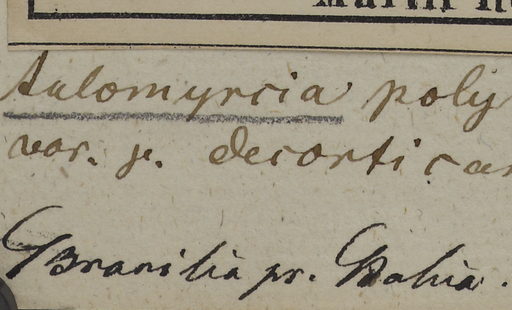 Aulomyrcia poly
var. γ. decortican
Brasilia pr. Bahia.